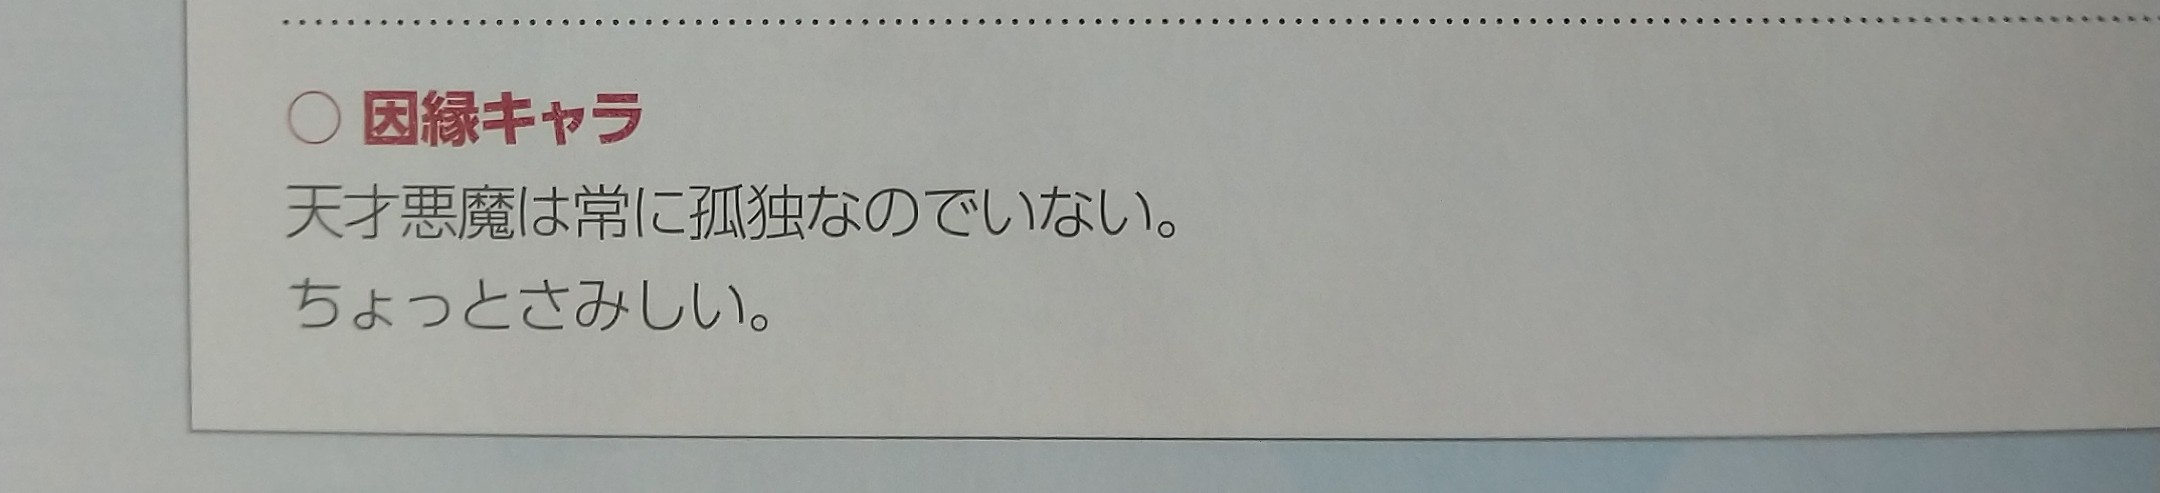 ○ 因縁キャラ
天才悪魔は常に孤独なのでいない。
ちょっとさみしい。